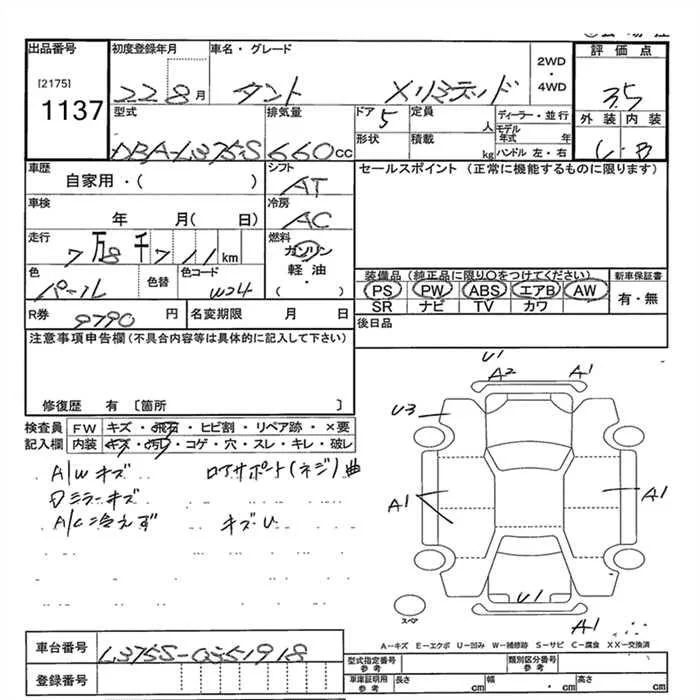 出品番号 初度登録年月 車名・グレード 2WD・4WD 評価点
[2175]
1137 22 8月 タント 3.5
型式 排気量 ドア 5 定員 人 ディーラー・並行 外装 内装
モデル年式 年
DBA-L375S 660cc 形状 積載 kg ハンドル 左・右 C B
車歴 シフト セールスポイント (正常に機能するものに限ります)
自家用・( ) AT
車検 冷房
年 月( 日) AC
走行 燃料
7万8千711km ガソリン
色 色替 色コード 軽油 装備品 (純正品に限り○をつけてください) 新車保証書
パール W24 ( ) PS PW ABS エアB AW 有・無
SR ナビ TV カワ
R券 9790円 名変期限 月 日 後日品
注意事項申告欄(不具合内容等は具体的に記入して下さい)
修復歴 有 〔箇所 〕
検査員 FW キズ・飛石・ヒビ割・リペア跡・×要
記入欄 内装 キズ・汚れ・コゲ・穴・スレ・キレ・破レ
A/Wキズ ロアサポート(ネジ)曲
Dミラーキズ
A/C冷えず キズU
U1
A2 A1
U3
A1 A1
U1
スペア A1
A-キズ E-エクボ U-凹み W-補修跡 S-サビ C-腐食 XX-交換済
車台番号 L375S-0351918 型式指定番号 参考 類別区分番号 参考
登録番号 車庫証明用 参考 長さ cm 幅 cm 高さ cm